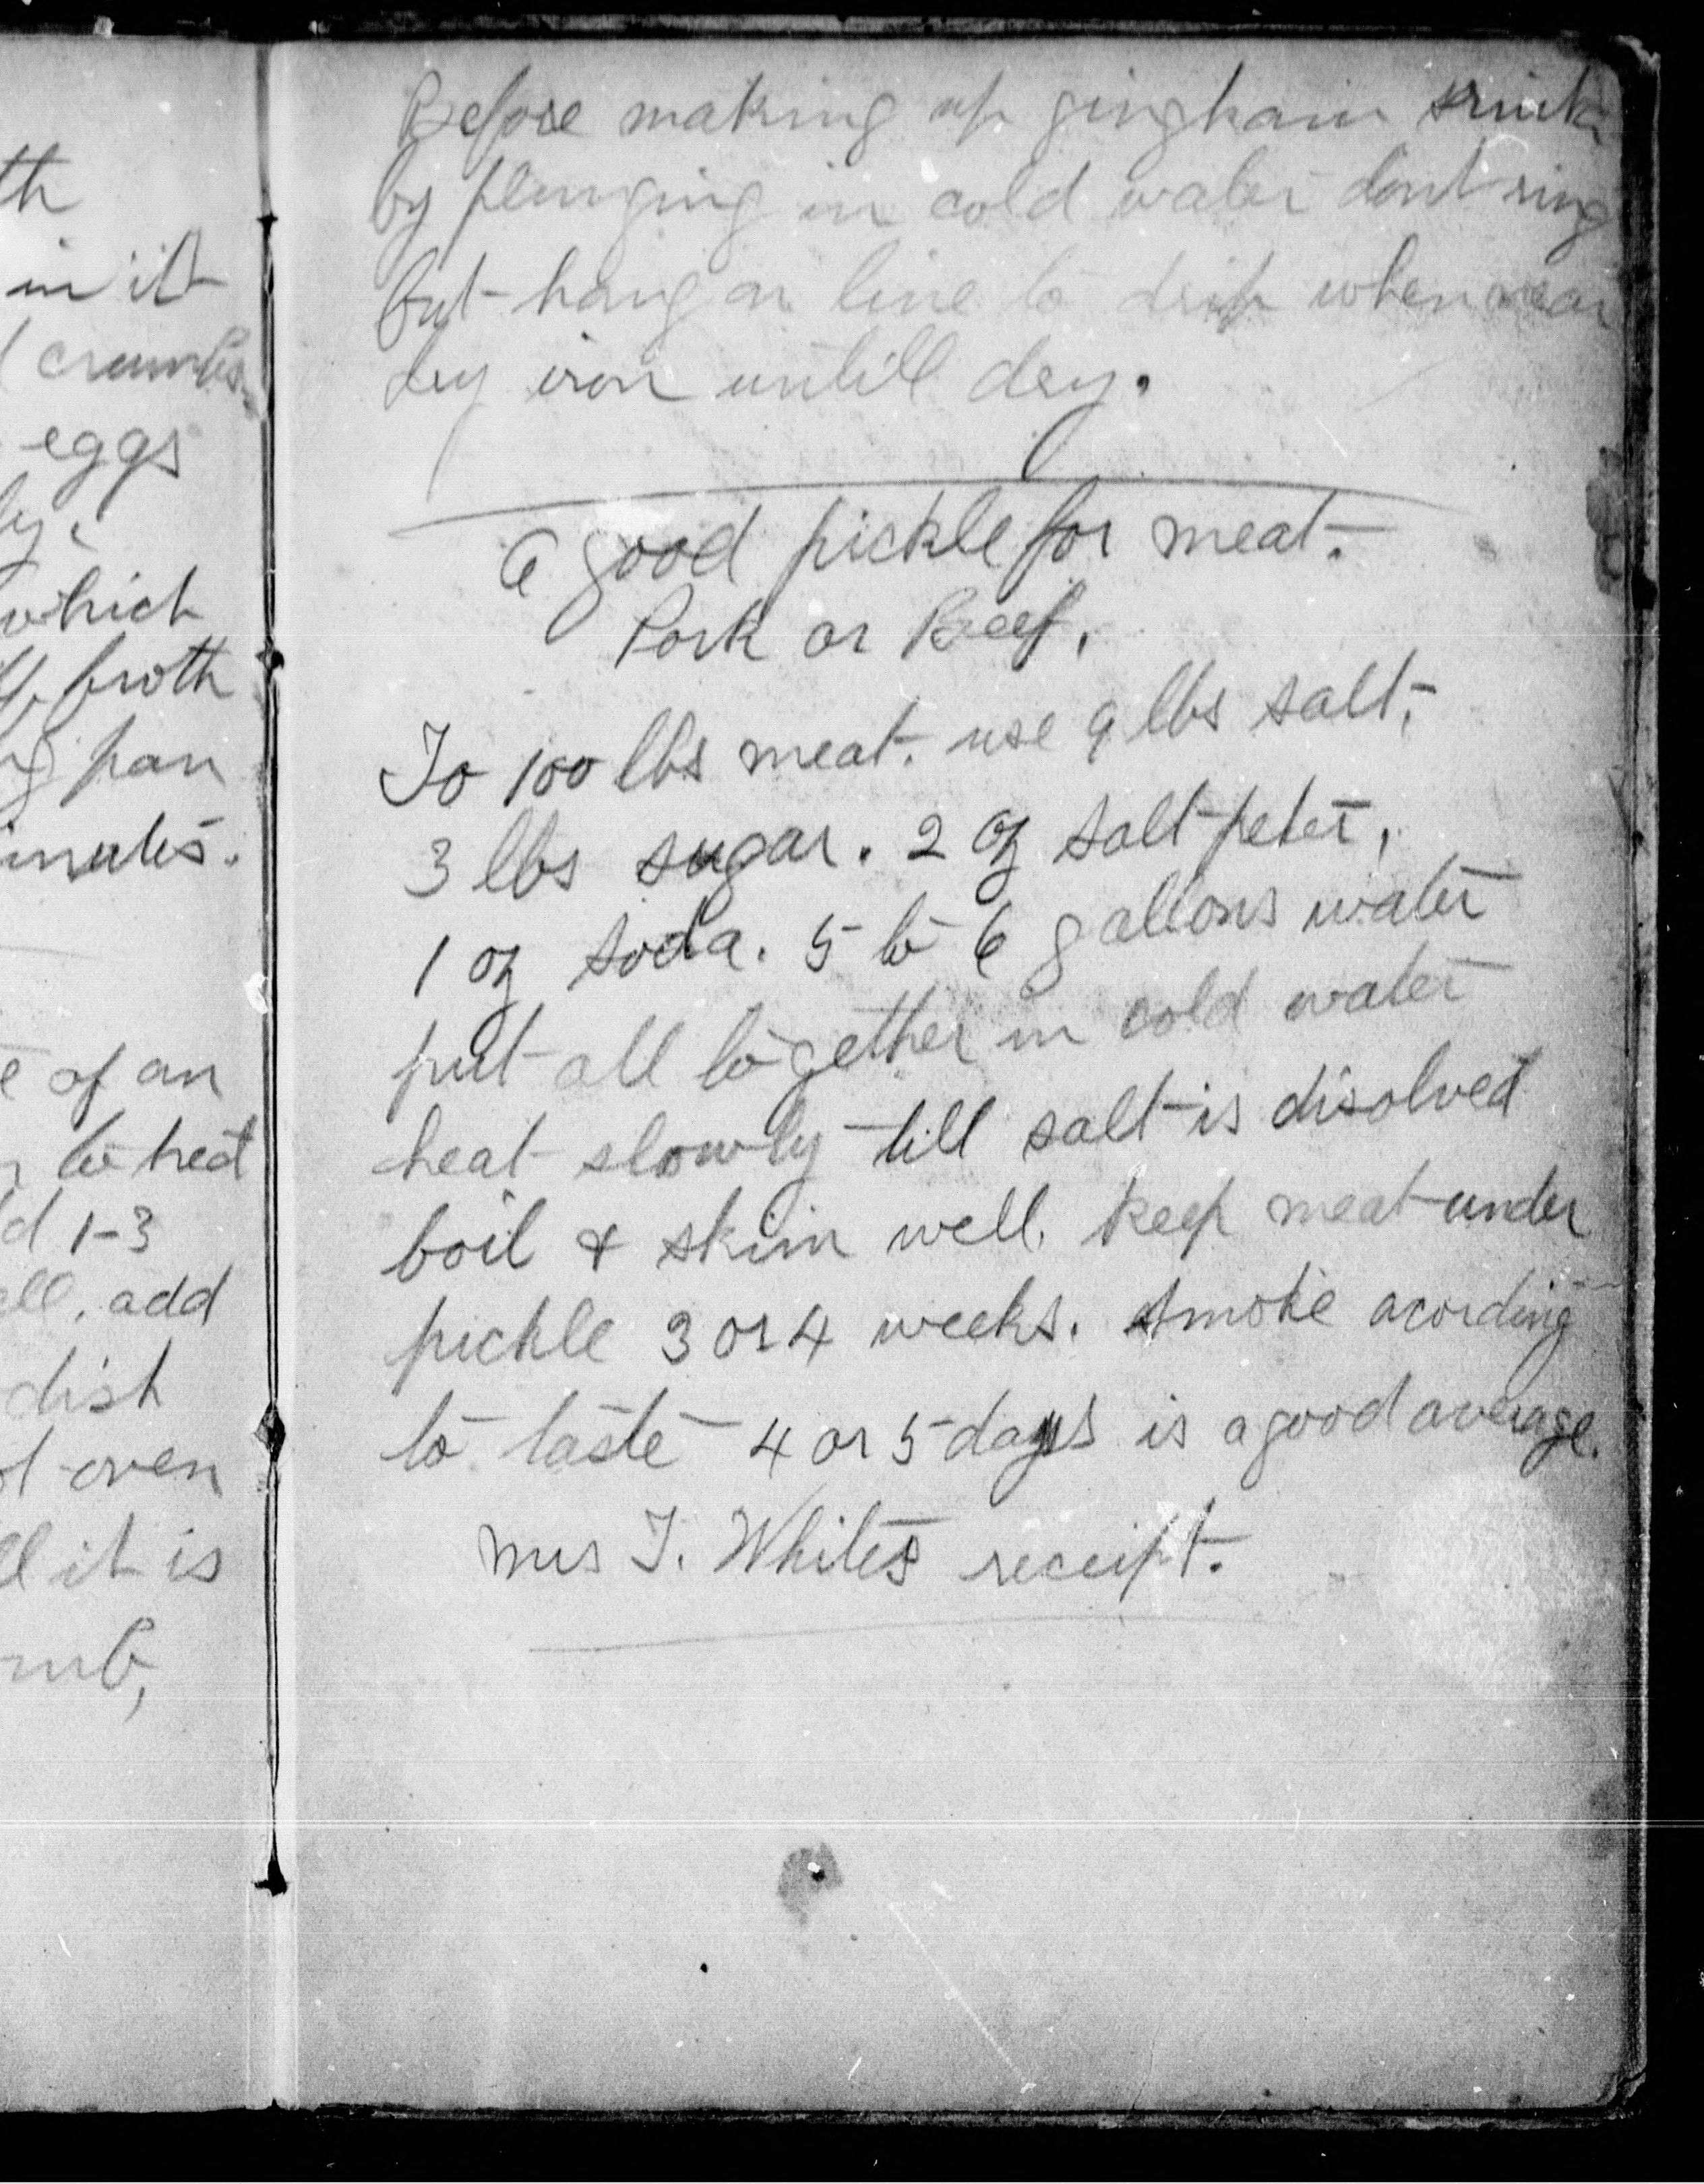 th
in it
crumbs
eggs
which
broth
pan
inutes.
of an
to heat
d 1-3
all, add
dish
oven
ll it is
Before making up gingham srink
by plunging in cold water dont ring
but hang on line to drip when near
dry iron untill dry.
A good pickle for meat.
Pork or Beef.
To 100 lbs meat. use 9 lbs salt,
3 lbs sugar. 2 oz salt peter,
1 oz soda. 5 to 6 gallons water
put all together in cold water
heat slowly till salt is disolved
boil & skim well. keep meat under
pickle 3 or 4 weeks. smoke acording
to taste 4 or 5 days is a good average.
Mrs T. Whites receipt.